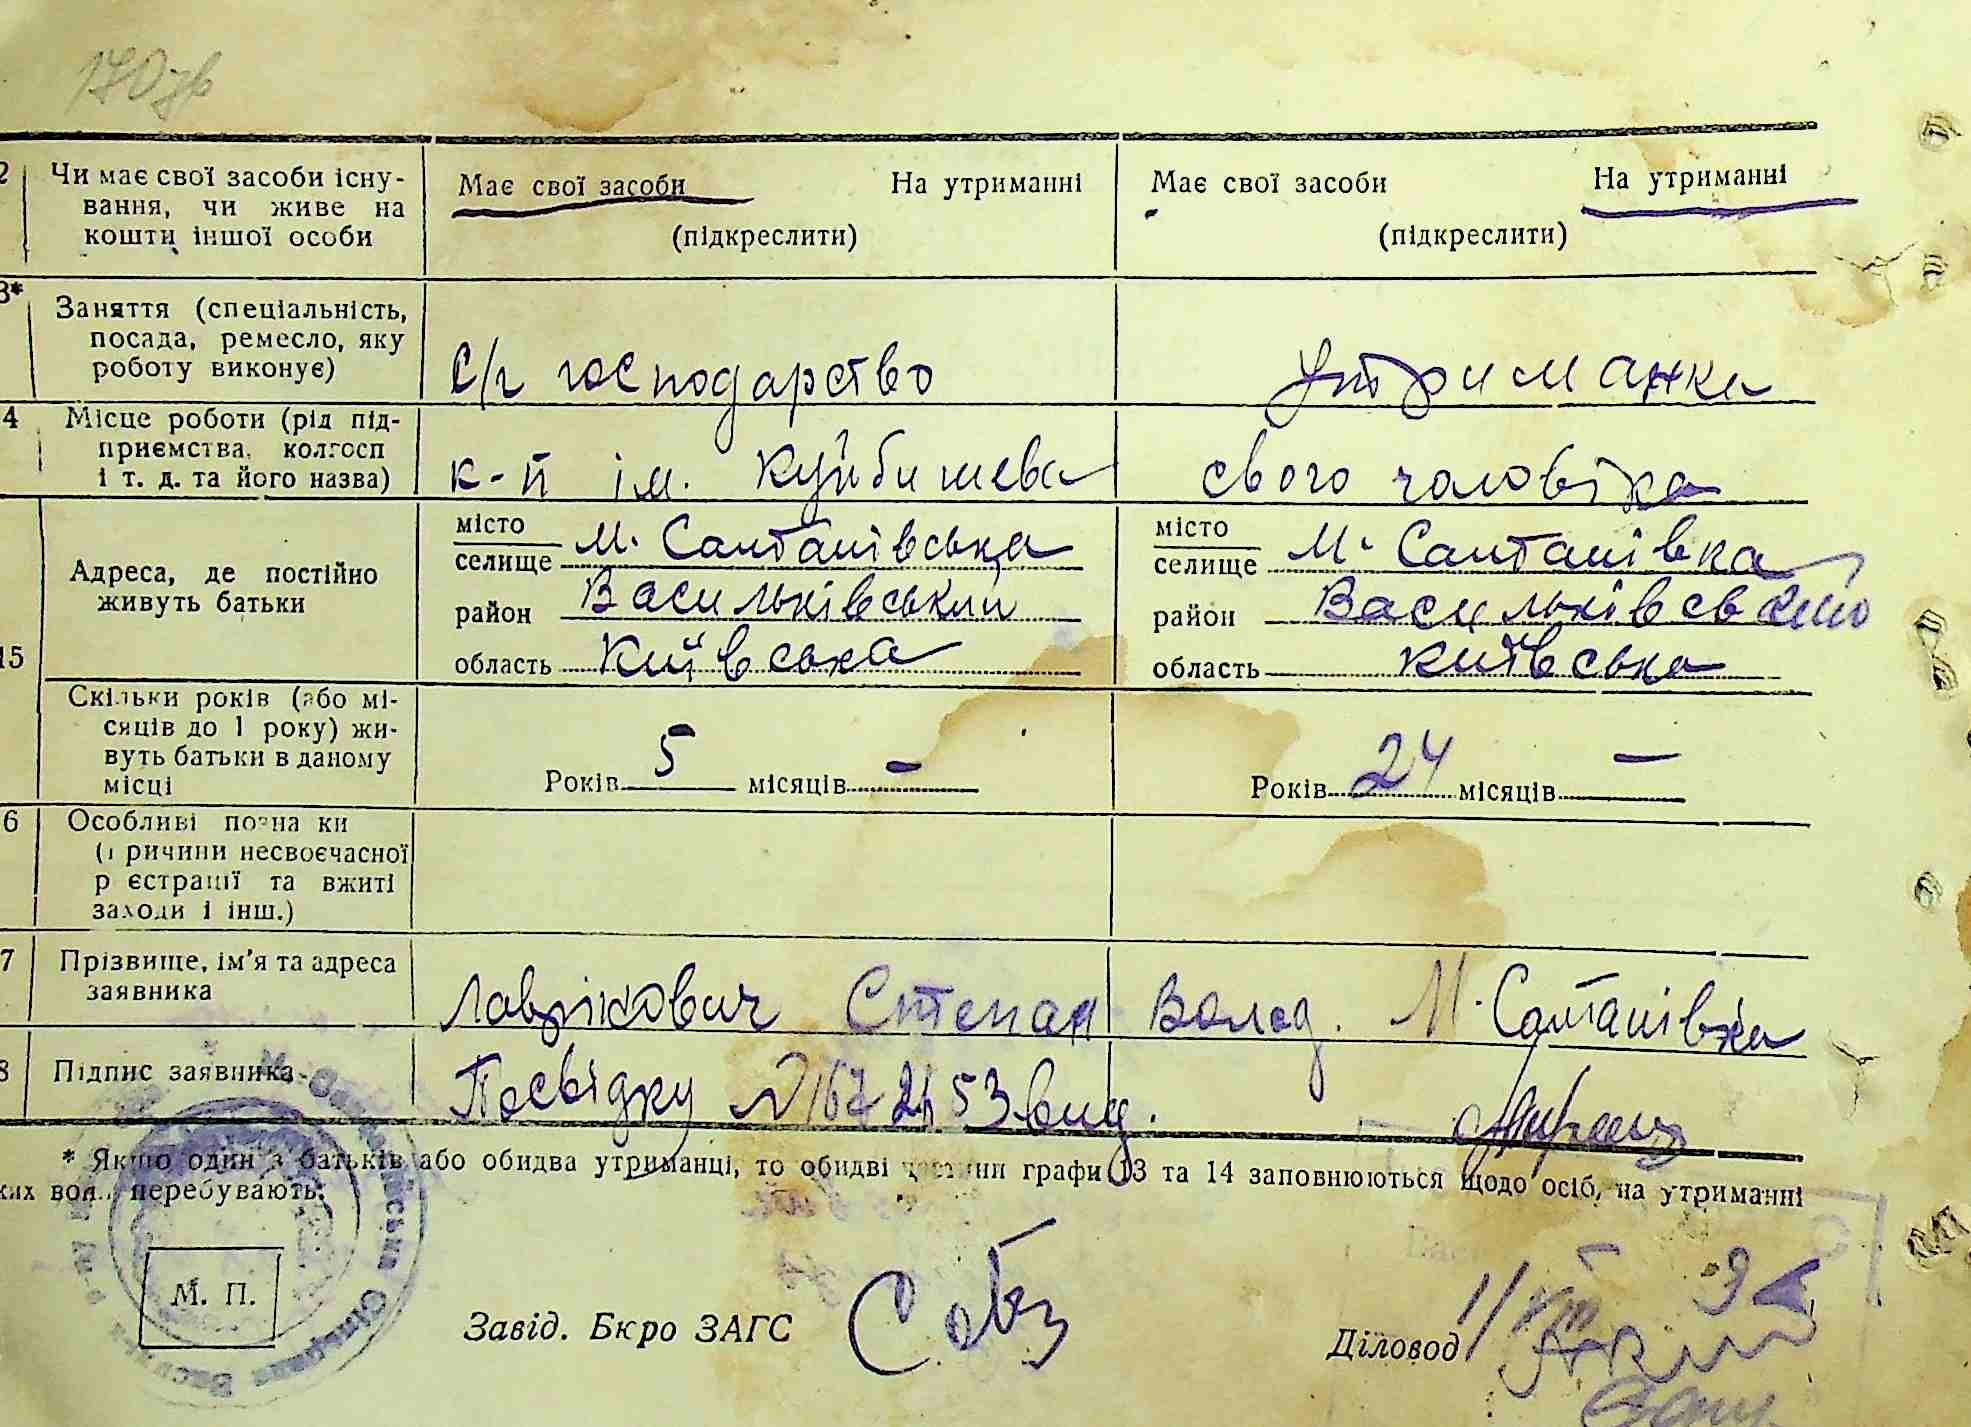 170 зв
2 Чи має свої засоби існу- Має свої засоби На утриманні Має свої засоби На утриманні
вання, чи живе на
кошти іншої особи (підкреслити) (підкреслити)
3* Заняття (спеціальність,
посада, ремесло, яку
роботу виконує) с/г господарство Утриманка
4 Місце роботи (рід під-
приємства, колгосп
і т. д. та його назва) к-п ім. Куйбишева свого чоловіка
місто місто
селище М. Салтанівська селище М. Салтанівка
Адреса, де постійно
живуть батьки район Васильківський район Васильківський
15 область Київська область Київська
Скільки років (або мі-
сяців до 1 року) жи-
вуть батьки в даному
місці Років 5 місяців — Років 24 місяців —
6 Особливі познаки
(причини несвоєчасної
реєстрації та вжиті
заходи і інш.)
7 Прізвище, ім'я та адреса
заявника Лаврікович Степан Волод. М. Салтанівка
8 Підпис заявника Посвідку № вид.
* Якщо один з батьків або обидва утриманці, то обидві частини графи 13 та 14 заповнюються щодо осіб, на утриманні
ких вони перебувають.
М. П.
Завід. Бкро ЗАГС
Діловод